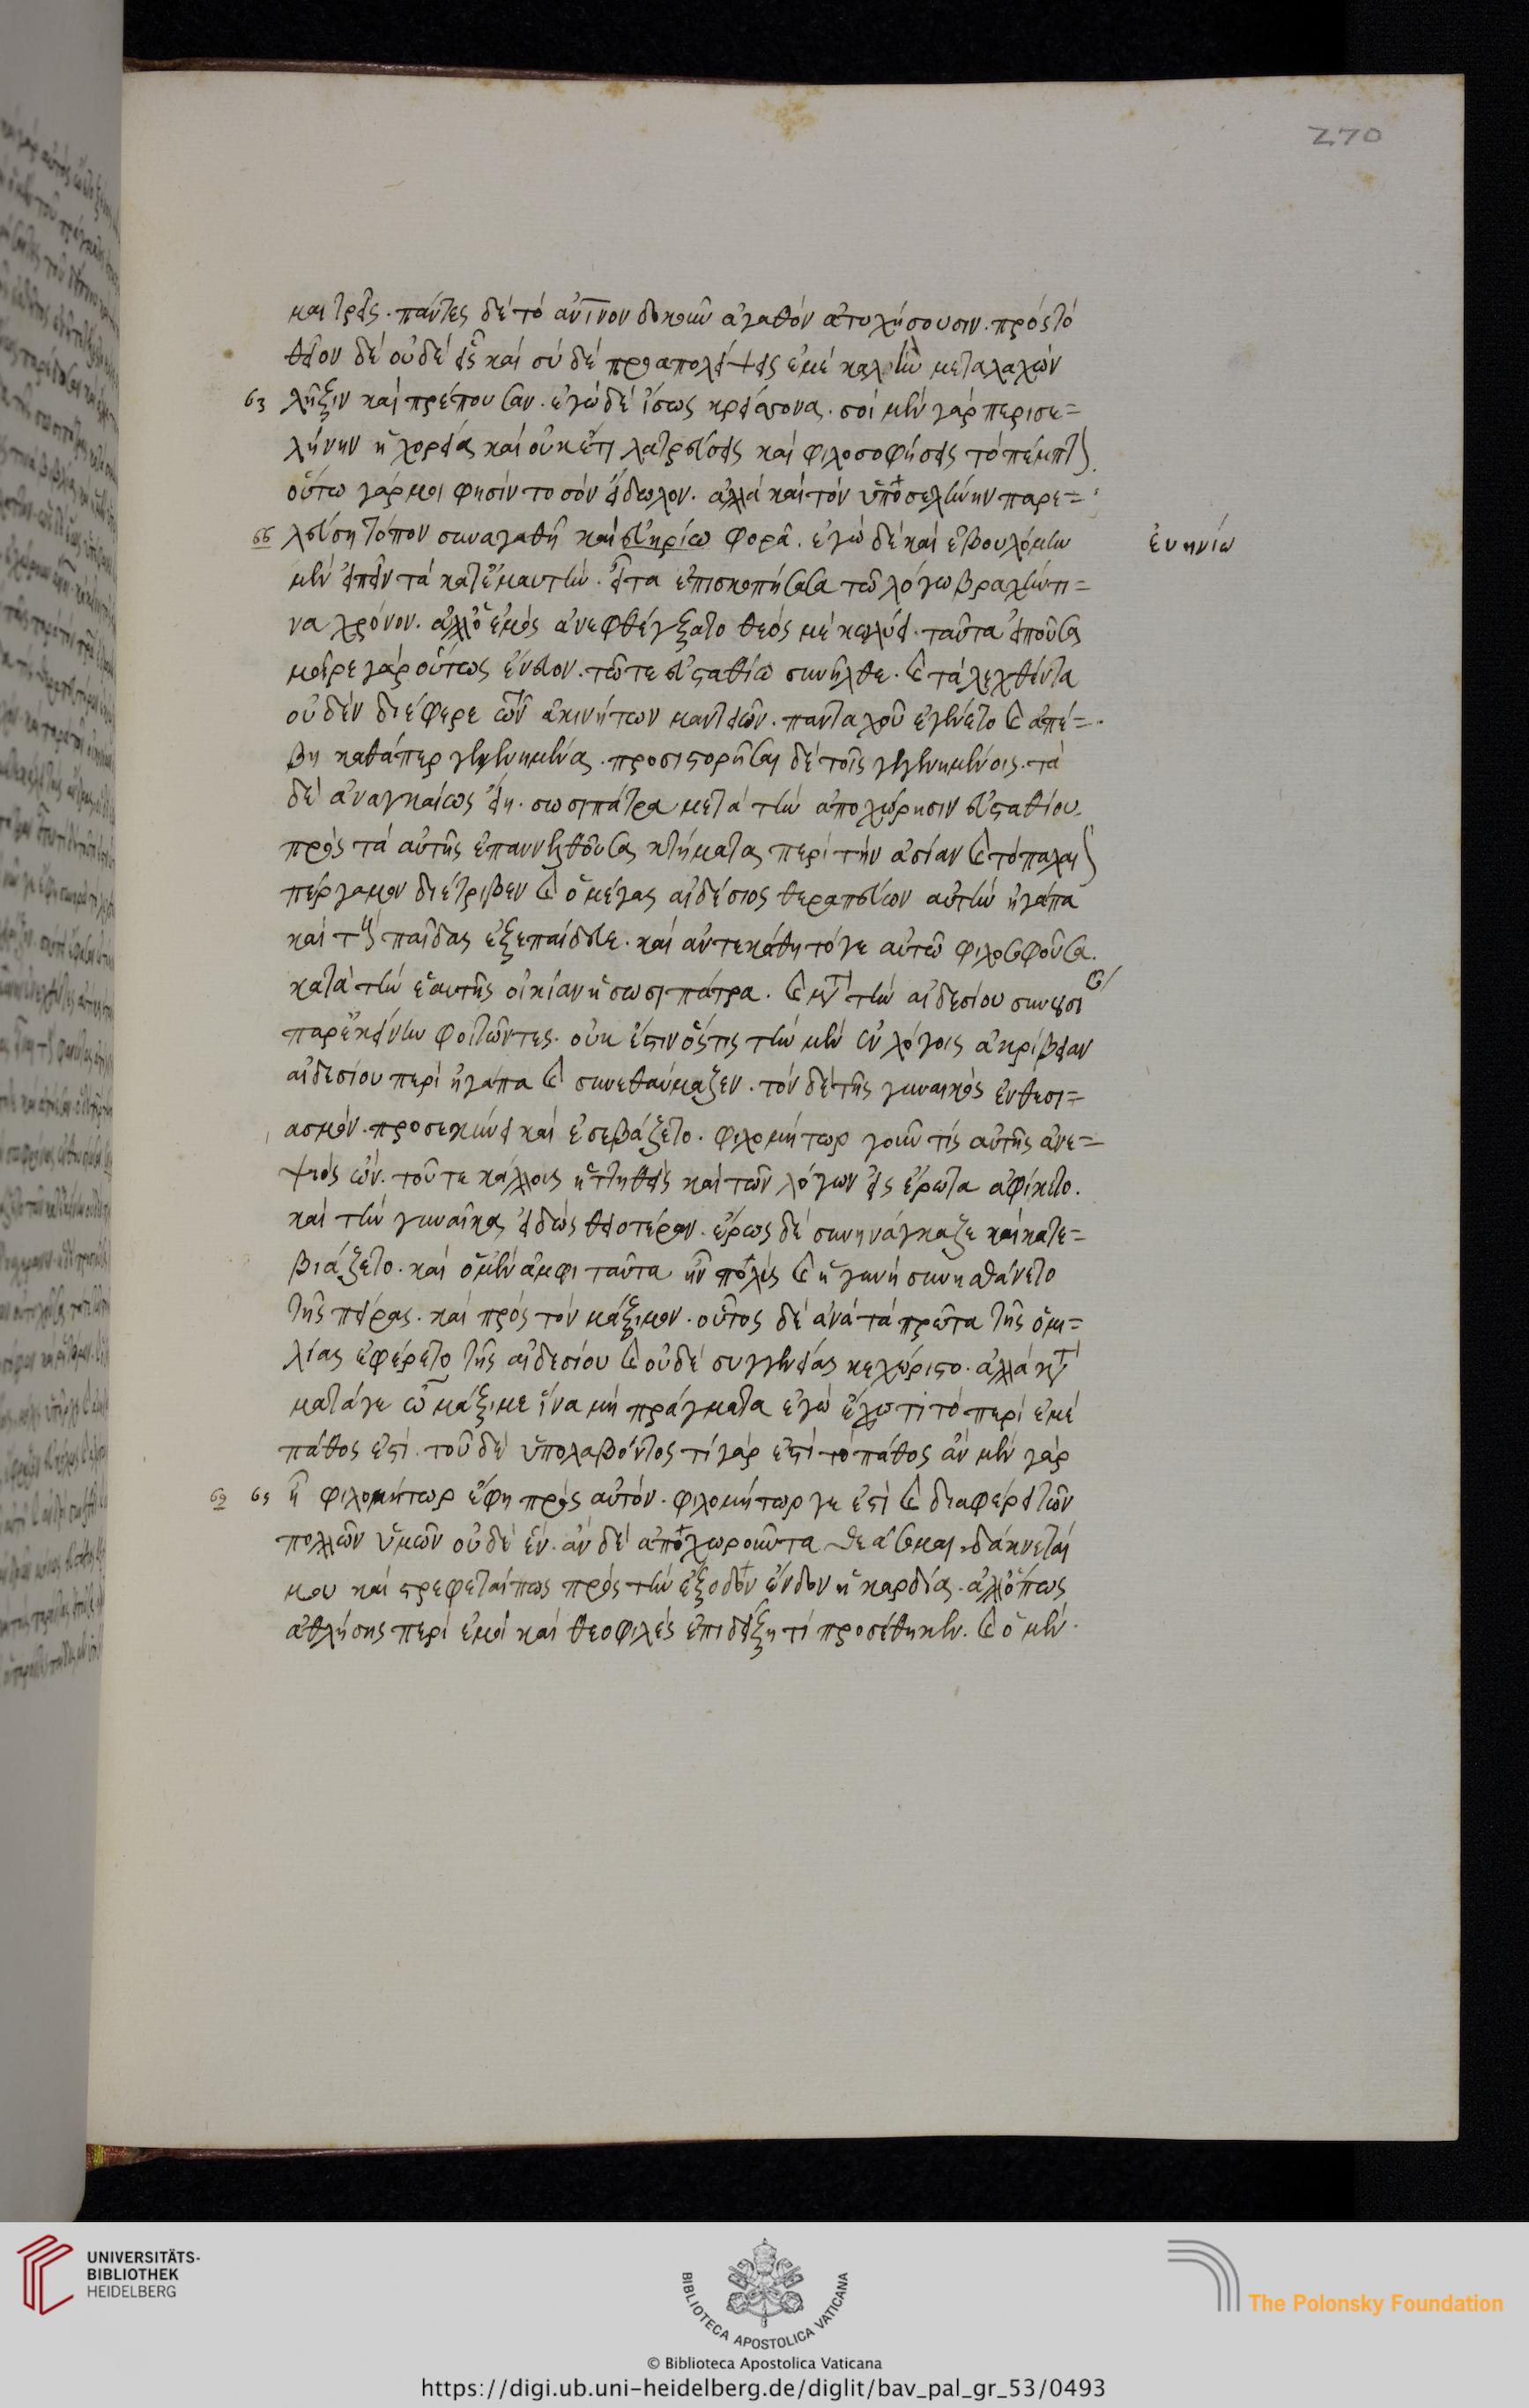 270
και τρεῖς. πάντες δὲ τὸ ἀνῖνον δοκοῦν ἀγαθὸν ἀτυχήσουσιν. πρὸς τὸ
θεῖον δὲ οὐδὲ εἷς καὶ σὺ δὲ προαπολείψεις ἐμὲ καλὴν μεταλαχὼν
63 λῆξιν καὶ πρέπουσαν. ἐγὼ δὲ ἴσως κρείσσονα. σοὶ μὲν γὰρ περισε=
λήνην ἡ χορεία καὶ οὐκέτι λατρεύσεις καὶ φιλοσοφήσεις τὸ πέμπτ
οὕτω γάρ μοι φησὶν τὸ σὸν εἴδωλον. ἀλλὰ καὶ τὸν ὑπὸ σελήνην παρε=
66 λεύσῃ τόπον σὺν ἀγαθῇ καὶ εὐηρίω φορᾷ. ἐγὼ δὲ καὶ ἐβουλόμην
εὐηνίω
μὲν εἰπεῖν τὰ κατ' ἐμαυτὴν. εἶτα ἐπισιωπήσασα τῶ λόγω βραχύν τι=
να χρόνον. ἀλλ' ὁ ἐμὸς ἀνεφθέγξατο θεός με κωλύει. ταῦτα εἰποῦσα
μοῖραι γὰρ οὕτως ἔνευον. τῶ τε εὐσταθίω συνῆλθε. καὶ τὰ λεχθέντα
οὐδὲν διέφερε τῶν ἀκινήτων μαντειῶν. πανταχοῦ ἐγένετο καὶ ἀπέ=
βη καθάπερ γεγενημένα. προσιστορῆσαι δὲ τοῖς γεγενημένοις. τὰ
δὲ ἀναγκαίως ἔδει. σωσιπάτρα μετὰ τὴν ἀποχώρησιν εὐσταθίου
πρὸς τὰ αὐτῆς ἐπανελθοῦσα κτήματα περὶ τὴν ἀσίαν καὶ τὸ παλαι
πέργαμον διέτριβεν καὶ ὁ μέγας αἰδέσιος θεραπεύων αὐτὴν ἠγάπα
καὶ τοὺς παῖδας ἐξεπαίδευε. καὶ ἀντεκάθητό γε αὐτῶ φιλοσοφοῦσα.
κατὰ τὴν ἑαυτῆς οἰκίαν ἡ σωσιπάτρα. καὶ μετὰ τὴν αἰδεσίου συνουσι
παρ' ἐκείνην φοιτῶντες. οὐκ ἔστιν ὅστις τὴν μὲν ἐν λόγοις ἀκρίβειαν
αἰδεσίου περὶ ἠγάπα καὶ συνεθαύμαζεν. τὸν δὲ τῆς γυναικὸς ἐνθεσι=
ασμόν. προσεκύνει καὶ ἐσεβάζετο. φιλομήτωρ γοῦν τίς αὐτῆς ἀνε=
ψιὸς ὤν. τοῦ τε κάλλους ἡττηθεὶς καὶ τῶν λόγων εἰς ἔρωτα ἀφίκετο.
καὶ τὴν γυναῖκα εἰδὼς θειοτέραν. ἔρως δὲ συνηνάγκαζε καὶ κατε=
βιάζετο. καὶ ὁ μὲν ἀμφὶ ταῦτα ἦν πολὺς καὶ ἡ γυνὴ συνῃσθάνετο
τῆς πείρας. καὶ πρὸς τὸν μάξιμον. οὗτος δὲ ἀνὰ τὰ πρῶτα τῆς ὁμι=
λίας ἐφέρετο τῆς αἰδεσίου καὶ οὐδὲ συγγενείας κεχώριστο. ἀλλὰ κατ
ματαγε ὦ μάξιμε ἵνα μὴ πράγματα ἐγὼ ἔχω τί τὸ περὶ ἐμὲ
πάθος ἐστί. τοῦ δὲ ὑπολαβόντος τί γὰρ ἐστὶ τὸ πάθος ἂν μὲν γὰρ
69 69 ἦ φιλομήτωρ ἔφη πρὸς αὐτόν. φιλομήτωρ γε ἐστὶ καὶ διαφέρει τῶν
πολλῶν ὑμῶν οὐδὲ ἕν. ἂν δὲ ἀποχωροῦντα θεάσωμαι δάκνεταί
μου καὶ στρέφεταί πως πρὸς τὴν ἔξοδον ἔνδον ἡ καρδία. ἀλλ' ὅπως
ἀθλήσῃς περὶ ἐμοὶ καὶ θεοφιλὲς ἐπιδείξῃ τί προσέθηκεν. καὶ ὁ μὲν
UNIVERSITÄTS-
BIBLIOTHEK
HEIDELBERG
BIBLIOTECA APOSTOLICA VATICANA
© Biblioteca Apostolica Vaticana
The Polonsky Foundation
https://digi.ub.uni-heidelberg.de/diglit/bav_pal_gr_53/0493